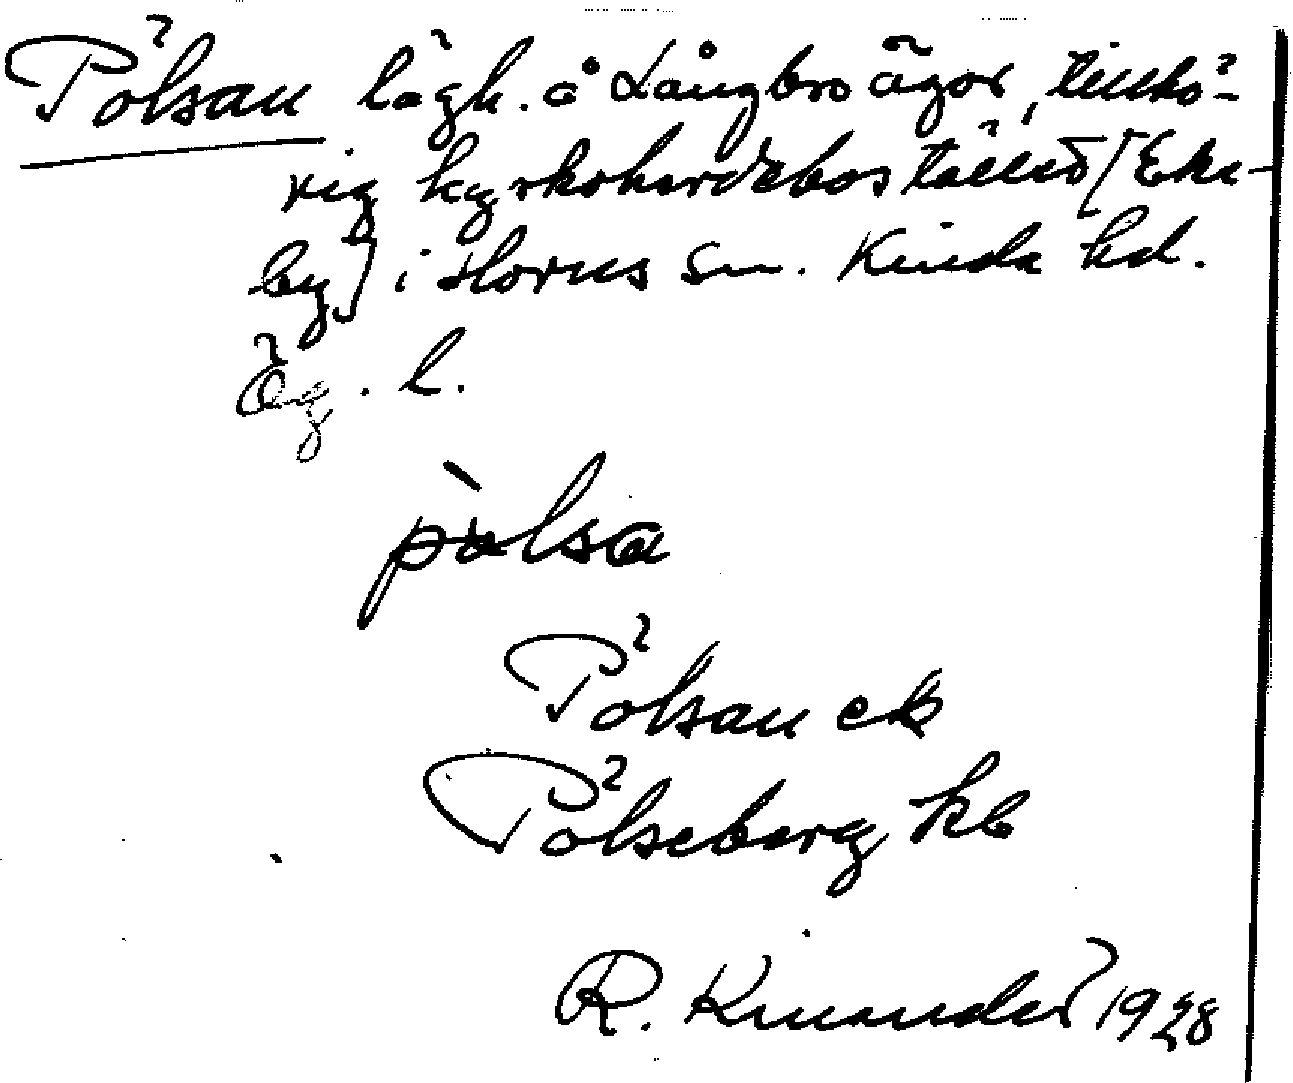 Pölsan lägh. å Långbro ägor, tillhö-
rig kyrkoherdebostället [Eke-
by] i Horns sn. Kinda hd.
Ög. l.
pölsa
Pölsan ek
Pölseberg kb
R. Kinander 1928